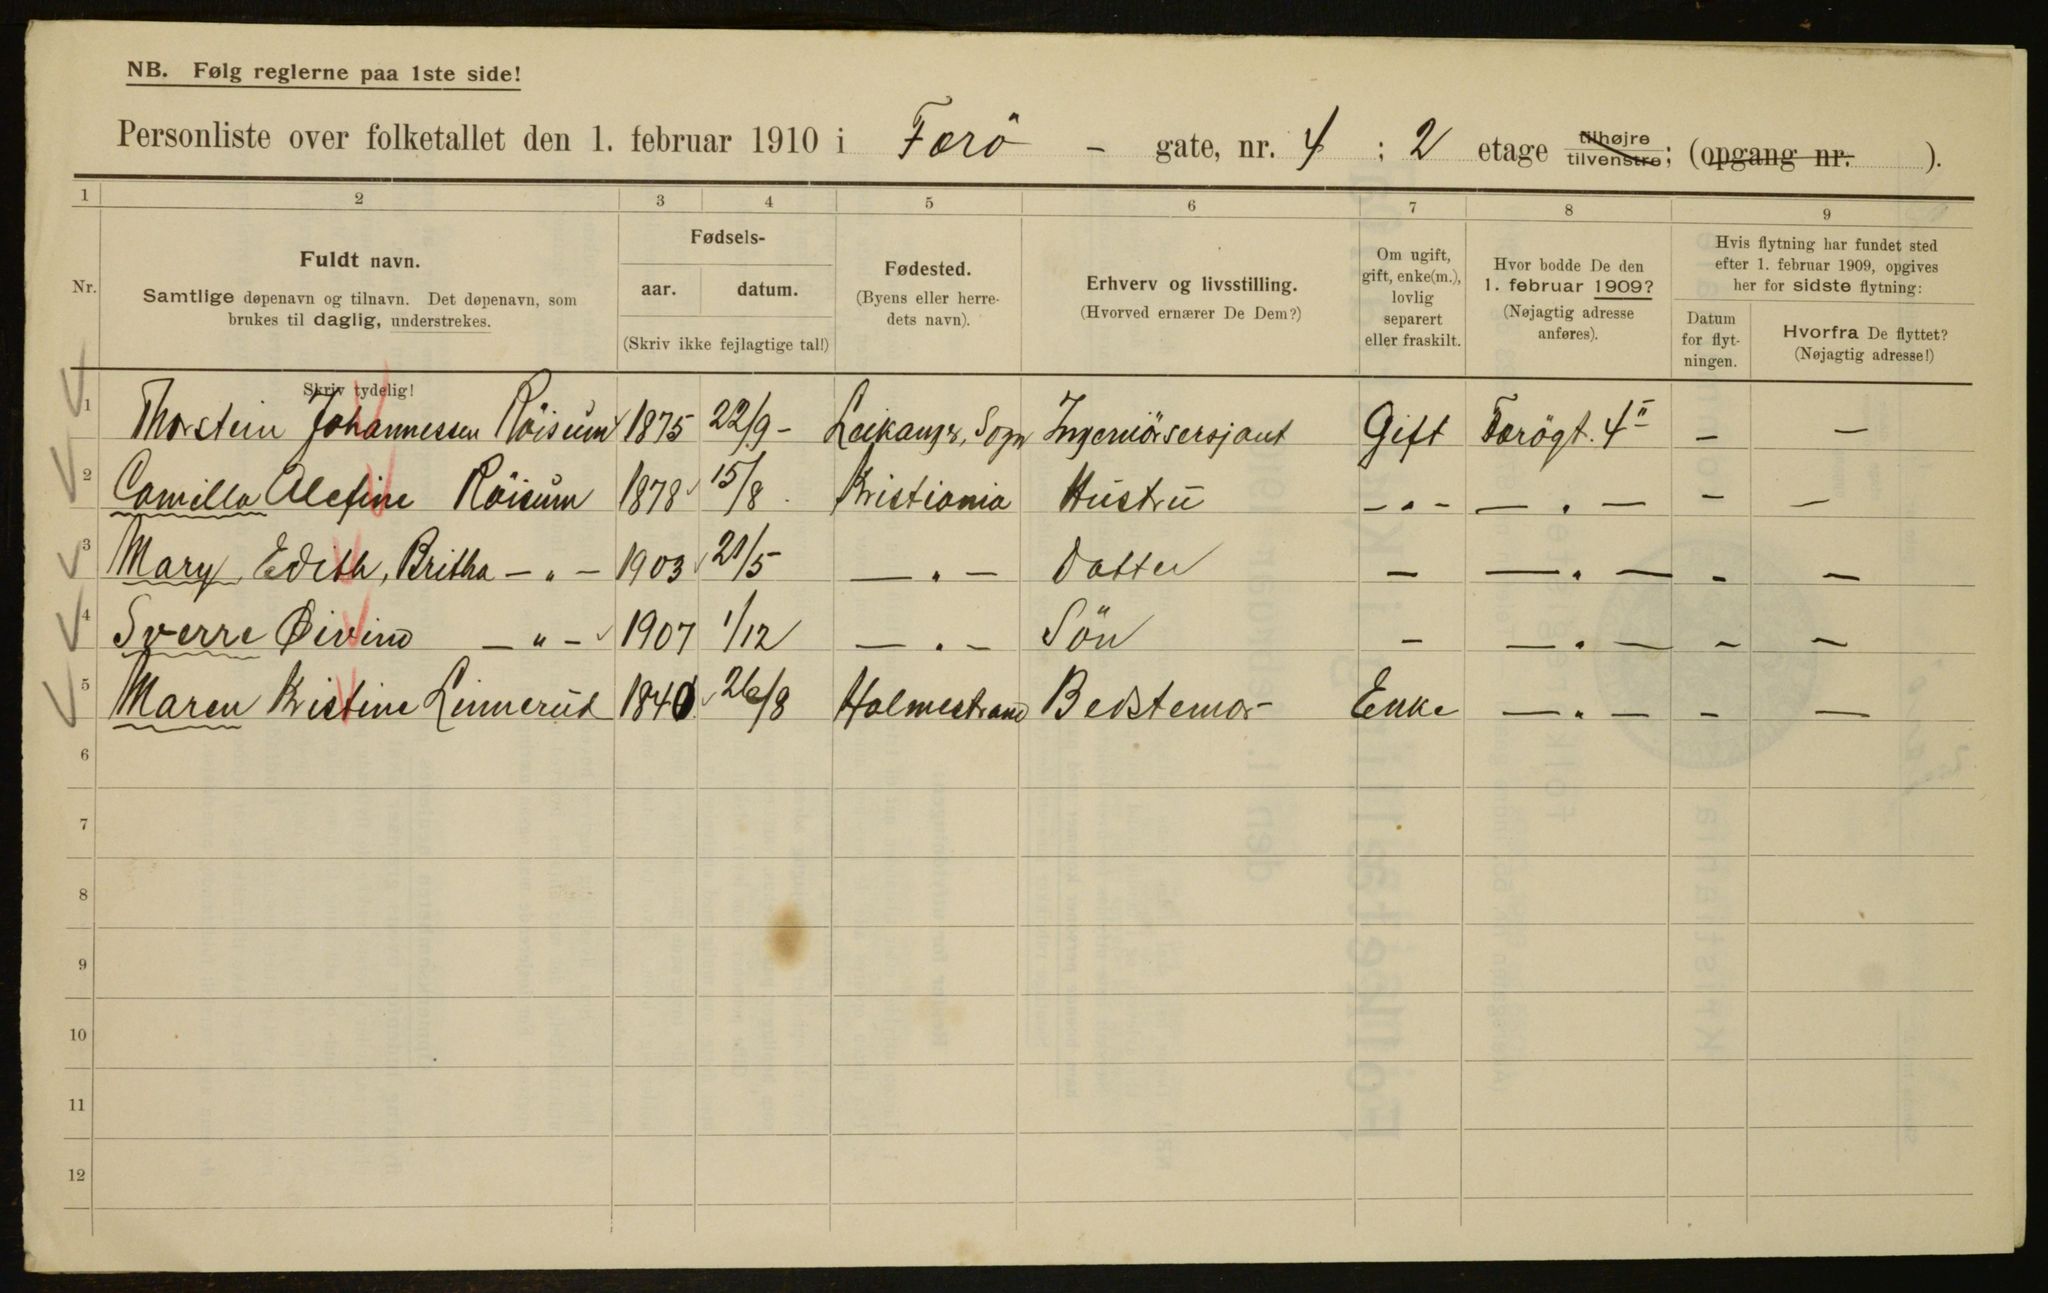 NB. Følg reglerne paa 1ste side!
Personliste over folketallet den 1. februar 1910 i Færö - gate, nr. 4 ; 2 etage tilhøjre tilvenstre; (opgang nr. ).
1 2 3 4 5 6 7 8 9
Nr.
Fuldt navn.
Samtlige døpenavn og tilnavn. Det døpenavn, som
brukes til daglig, understrekes.
Skriv tydelig!
Fødsels-
aar. datum.
(Skriv ikke fejlagtige tal!)
Fødested.
(Byens eller herre-
dets navn).
Erhverv og livsstilling.
(Hvorved ernærer De Dem?)
Om ugift,
gift, enke(m.),
lovlig
separert
eller fraskilt.
Hvor bodde De den
1. februar 1909?
(Nøjagtig adresse
anføres).
Hvis flytning har fundet sted
efter 1. februar 1909, opgives
her for sidste flytning:
Datum
for flyt-
ningen.
Hvorfra De flyttet?
(Nøjagtig adresse!)
1 Thorstein Johannessen Röisum 1875 22/9 - Leikanger, Sogn Ingeniörsersjant Gift Færögt. 4 II - -
2 Camilla Alefine Röisum 1878 15/8 Kristiania Hustru -.- -.- - -
3 Mary, Edith, Britha -"- 1903 21/5 -.- Datter - -.- - -
4 Sverre Øivind -"- 1907 1/12 -.- Sön - -.- - -
5 Maren Kristine Linnerud 1840 26/8 Holmestrand Bedstemor Enke -.- - -
6
7
8
9
10
11
12